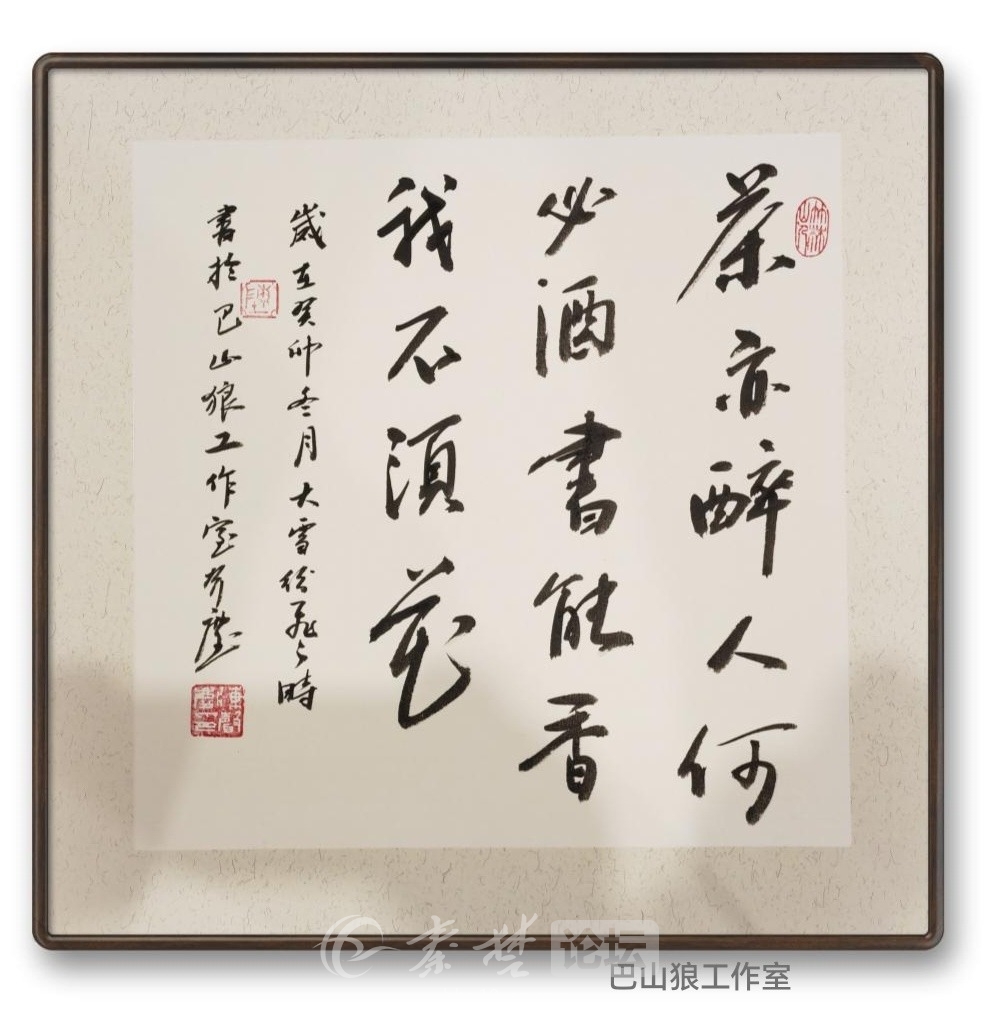 茶亦醉人何
必酒書能香
我不須花
歲在癸卯冬月大雪紛飛之時
書於巴山狼工作室塵
秦楚论坛
巴山狼工作室